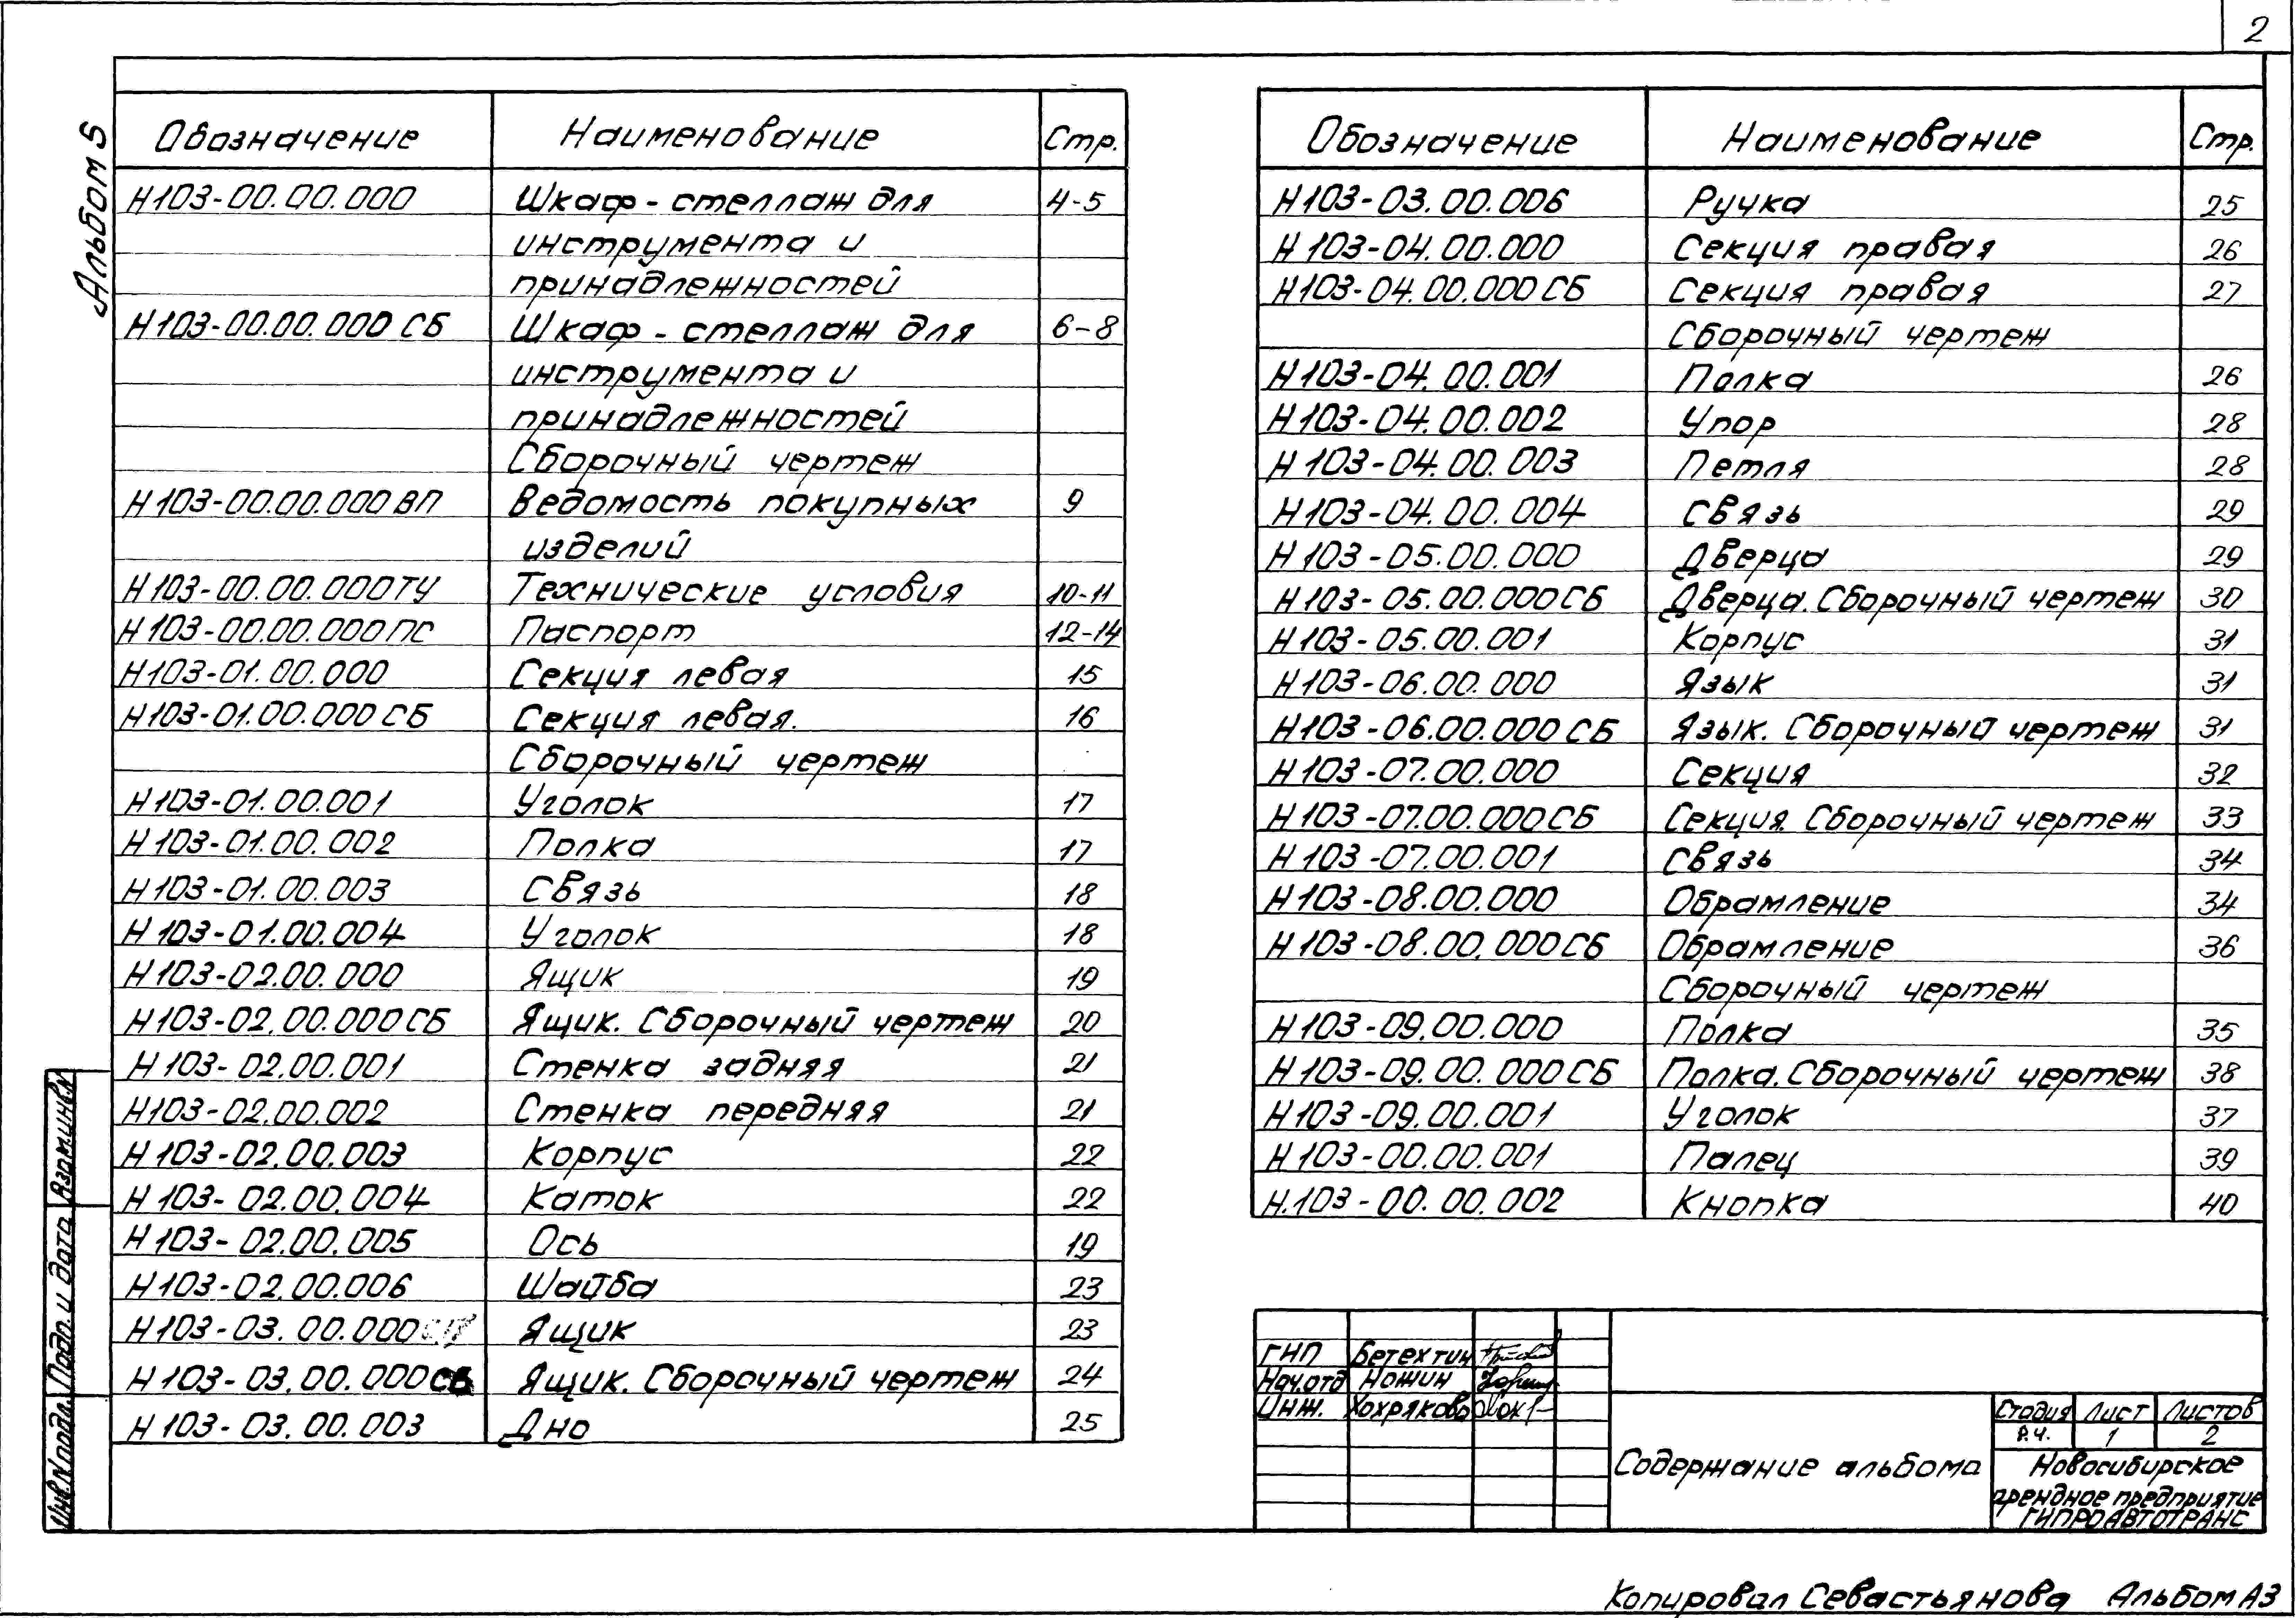 2
Альбом 5
Обозначение Наименование Стр.
Н103-00.00.000 Шкаф-стеллаж для 4-5
инструмента и
принадлежностей
Н103-00.00.000 СБ Шкаф-стеллаж для 6-8
инструмента и
принадлежностей
Сборочный чертеж
Н103-00.00.000 ВП Ведомость покупных 9
изделий
Н103-00.00.000ТУ Технические условия 10-11
Н103-00.00.000ПС Паспорт 12-14
Н103-01.00.000 Секция левая 15
Н103-01.00.000 СБ Секция левая. 16
Сборочный чертеж
Н103-01.00.001 Уголок 17
Н103-01.00.002 Полка 17
Н103-01.00.003 Связь 18
Н103-01.00.004 Уголок 18
Н103-02.00.000 Ящик 19
Н103-02.00.000СБ Ящик. Сборочный чертеж 20
Н103-02.00.001 Стенка задняя 21
Н103-02.00.002 Стенка передняя 21
Н103-02.00.003 Корпус 22
Н103-02.00.004 Каток 22
Н103-02.00.005 Ось 19
Н103-02.00.006 Шайба 23
Н103-03.00.000 Ящик 23
Н103-03.00.000СБ Ящик. Сборочный чертеж 24
Н103-03.00.003 Дно 25
Обозначение Наименование Стр.
Н103-03.00.006 Ручка 25
Н103-04.00.000 Секция правая 26
Н103-04.00.000 СБ Секция правая 27
Сборочный чертеж
Н103-04.00.001 Полка 26
Н103-04.00.002 Упор 28
Н103-04.00.003 Петля 28
Н103-04.00.004 Связь 29
Н103-05.00.000 Дверца 29
Н103-05.00.000СБ Дверца. Сборочный чертеж 30
Н103-05.00.001 Корпус 31
Н103-06.00.000 Язык 31
Н103-06.00.000 СБ Язык. Сборочный чертеж 31
Н103-07.00.000 Секция 32
Н103-07.00.000СБ Секция. Сборочный чертеж 33
Н103-07.00.001 Связь 34
Н103-08.00.000 Обрамление 34
Н103-08.00.000СБ Обрамление 36
Сборочный чертеж
Н103-09.00.000 Полка 35
Н103-09.00.000СБ Полка. Сборочный чертеж 38
Н103-09.00.001 Уголок 37
Н103-00.00.001 Палец 39
Н.103-00.00.002 Кнопка 40
Взам.инв.N
Подп. и дата
Инв.N подл.
ГИП Бетехтин
Нач.отд Ножин
Инж. Хохрякова
Содержание альбома
Стадия Лист Листов
Р.Ч. 1 2
Новосибирское
арендное предприятие
ГИПРОАВТОТРАНС
Копировал Севастьянова Альбом А3